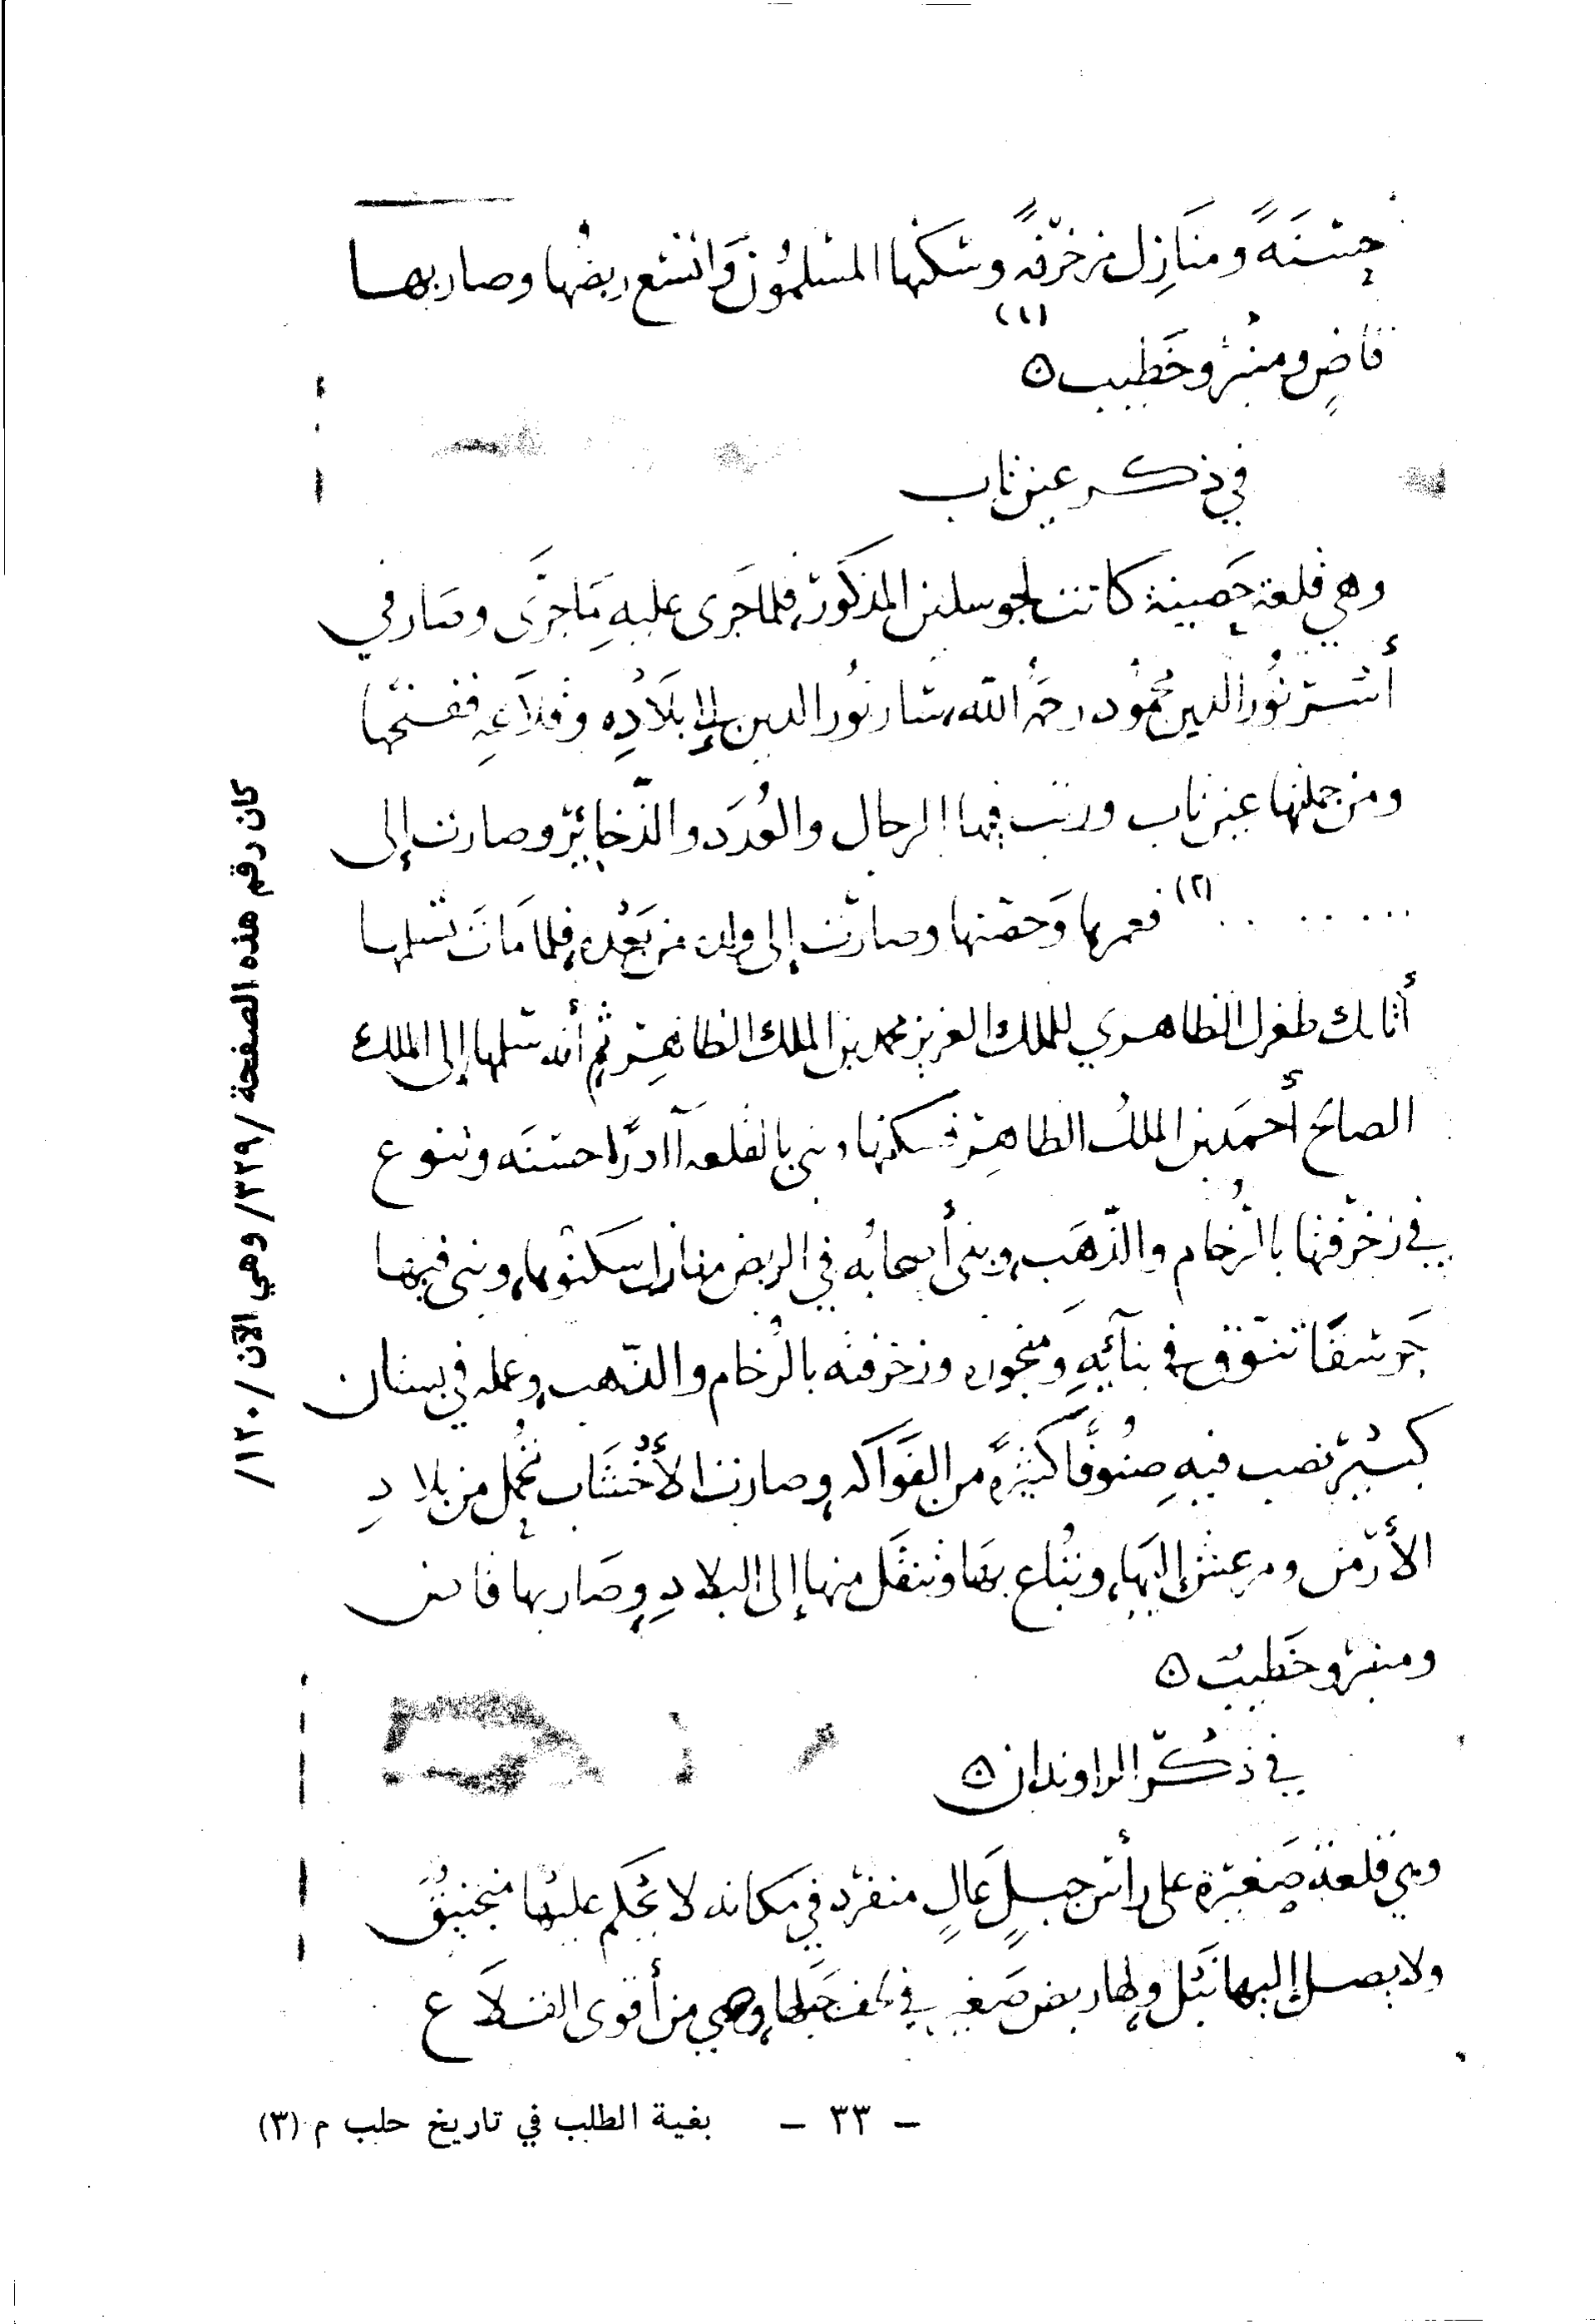 حسنةً ومنازل مزخرفةً وسكنها المسلمون واتسع ربضها وصار بها
قاضٍ ومنبر وخطيب (١)
في ذكر عين تاب
وهي قلعة حصينة كانت لجوسلين المذكور، فلما جرى عليه ما جرى وصار في
أسر نور الدين محمود رحمه الله، سار نور الدين إلى بلاده وقلاعه ففتحها
ومن جملتها عين تاب ورتب فيها الرجال والعُدَد والذّخائر وصارت إلى
. . . . . . . (٢) فعمرها وحصنها وصارت إلى ولده من بعده، فلما مات تسلمها
أتابك طغرل الظاهري للملك العزيز محمد بن الملك الظاهر ثم أنه سلمها إلى الملك
الصالح أحمد بن الملك الظاهر فسكنها وبنى بالقلعة آادرًا حسنه وتنوع
في زخرفتها بالرُّخام والذّهب، وبنى أصحابه في الربض منازل سكنوها، وبنى فيها
جوسقًا تنوّق في بنآئه ومنجوره وزخرفته بالرُّخام والذّهب، وعمله في بستان
كبير نصب فيه صنوفًا كثيرةً من الفواكه، وصارت الأخشاب تُحمل من بلاد
الأرمن ومرعش إليها، وتُباع بها وتنقل منها إلى البلاد، وصار بها قاض
ومنبر وخطيب
في ذكر الراوندان
وهي قلعة صغيرة على رأس جبلٍ عالٍ منفرد في مكانه لا يحكم عليها منجنيق
ولا يصل إليها نبل، ولها ربض صغير في لحف جبلها، وهي من أقوى القلاع
كان رقم هذه الصفحة /٣٢٩/ وهي الآن /١٢٠/
– ٣٣ – بغية الطلب في تاريخ حلب م (٣)